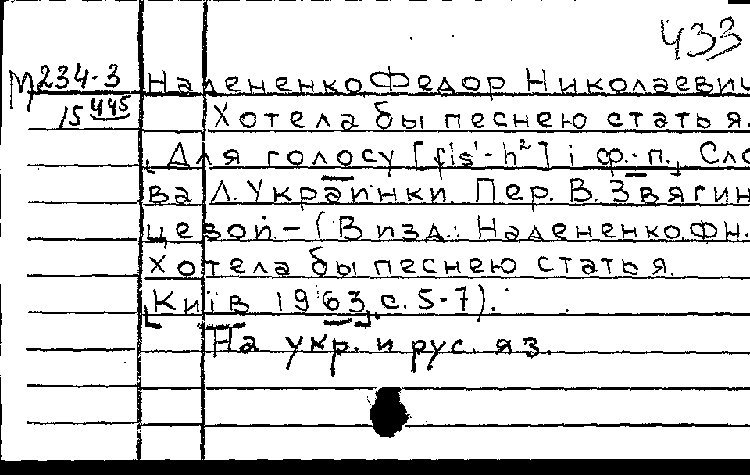 433
М 234-3 Надененко Федор Николаевич
15 445 Хотела бы песнею стать я.
Для голосу [fis¹-h²] і ф.-п. Сло
ва Л. Украинки. Пер. В. Звягин
цевой. - (В изд.: Надененко Ф.Н.
Хотела бы песнею стать я.
Київ 1963, с. 5-7).
На укр. и рус. яз.